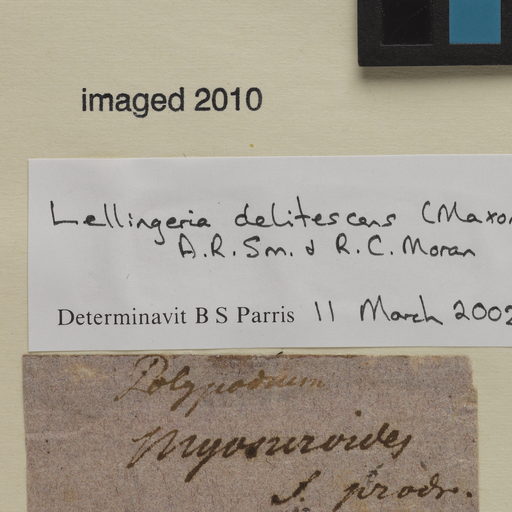 imaged 2010
Lellingeria delitescens (Maxon
A.R.Sm. & R.C. Moran
Determinavit B S Parris 11 March 2002
Polypodium
Myosuroides
S. prodr.